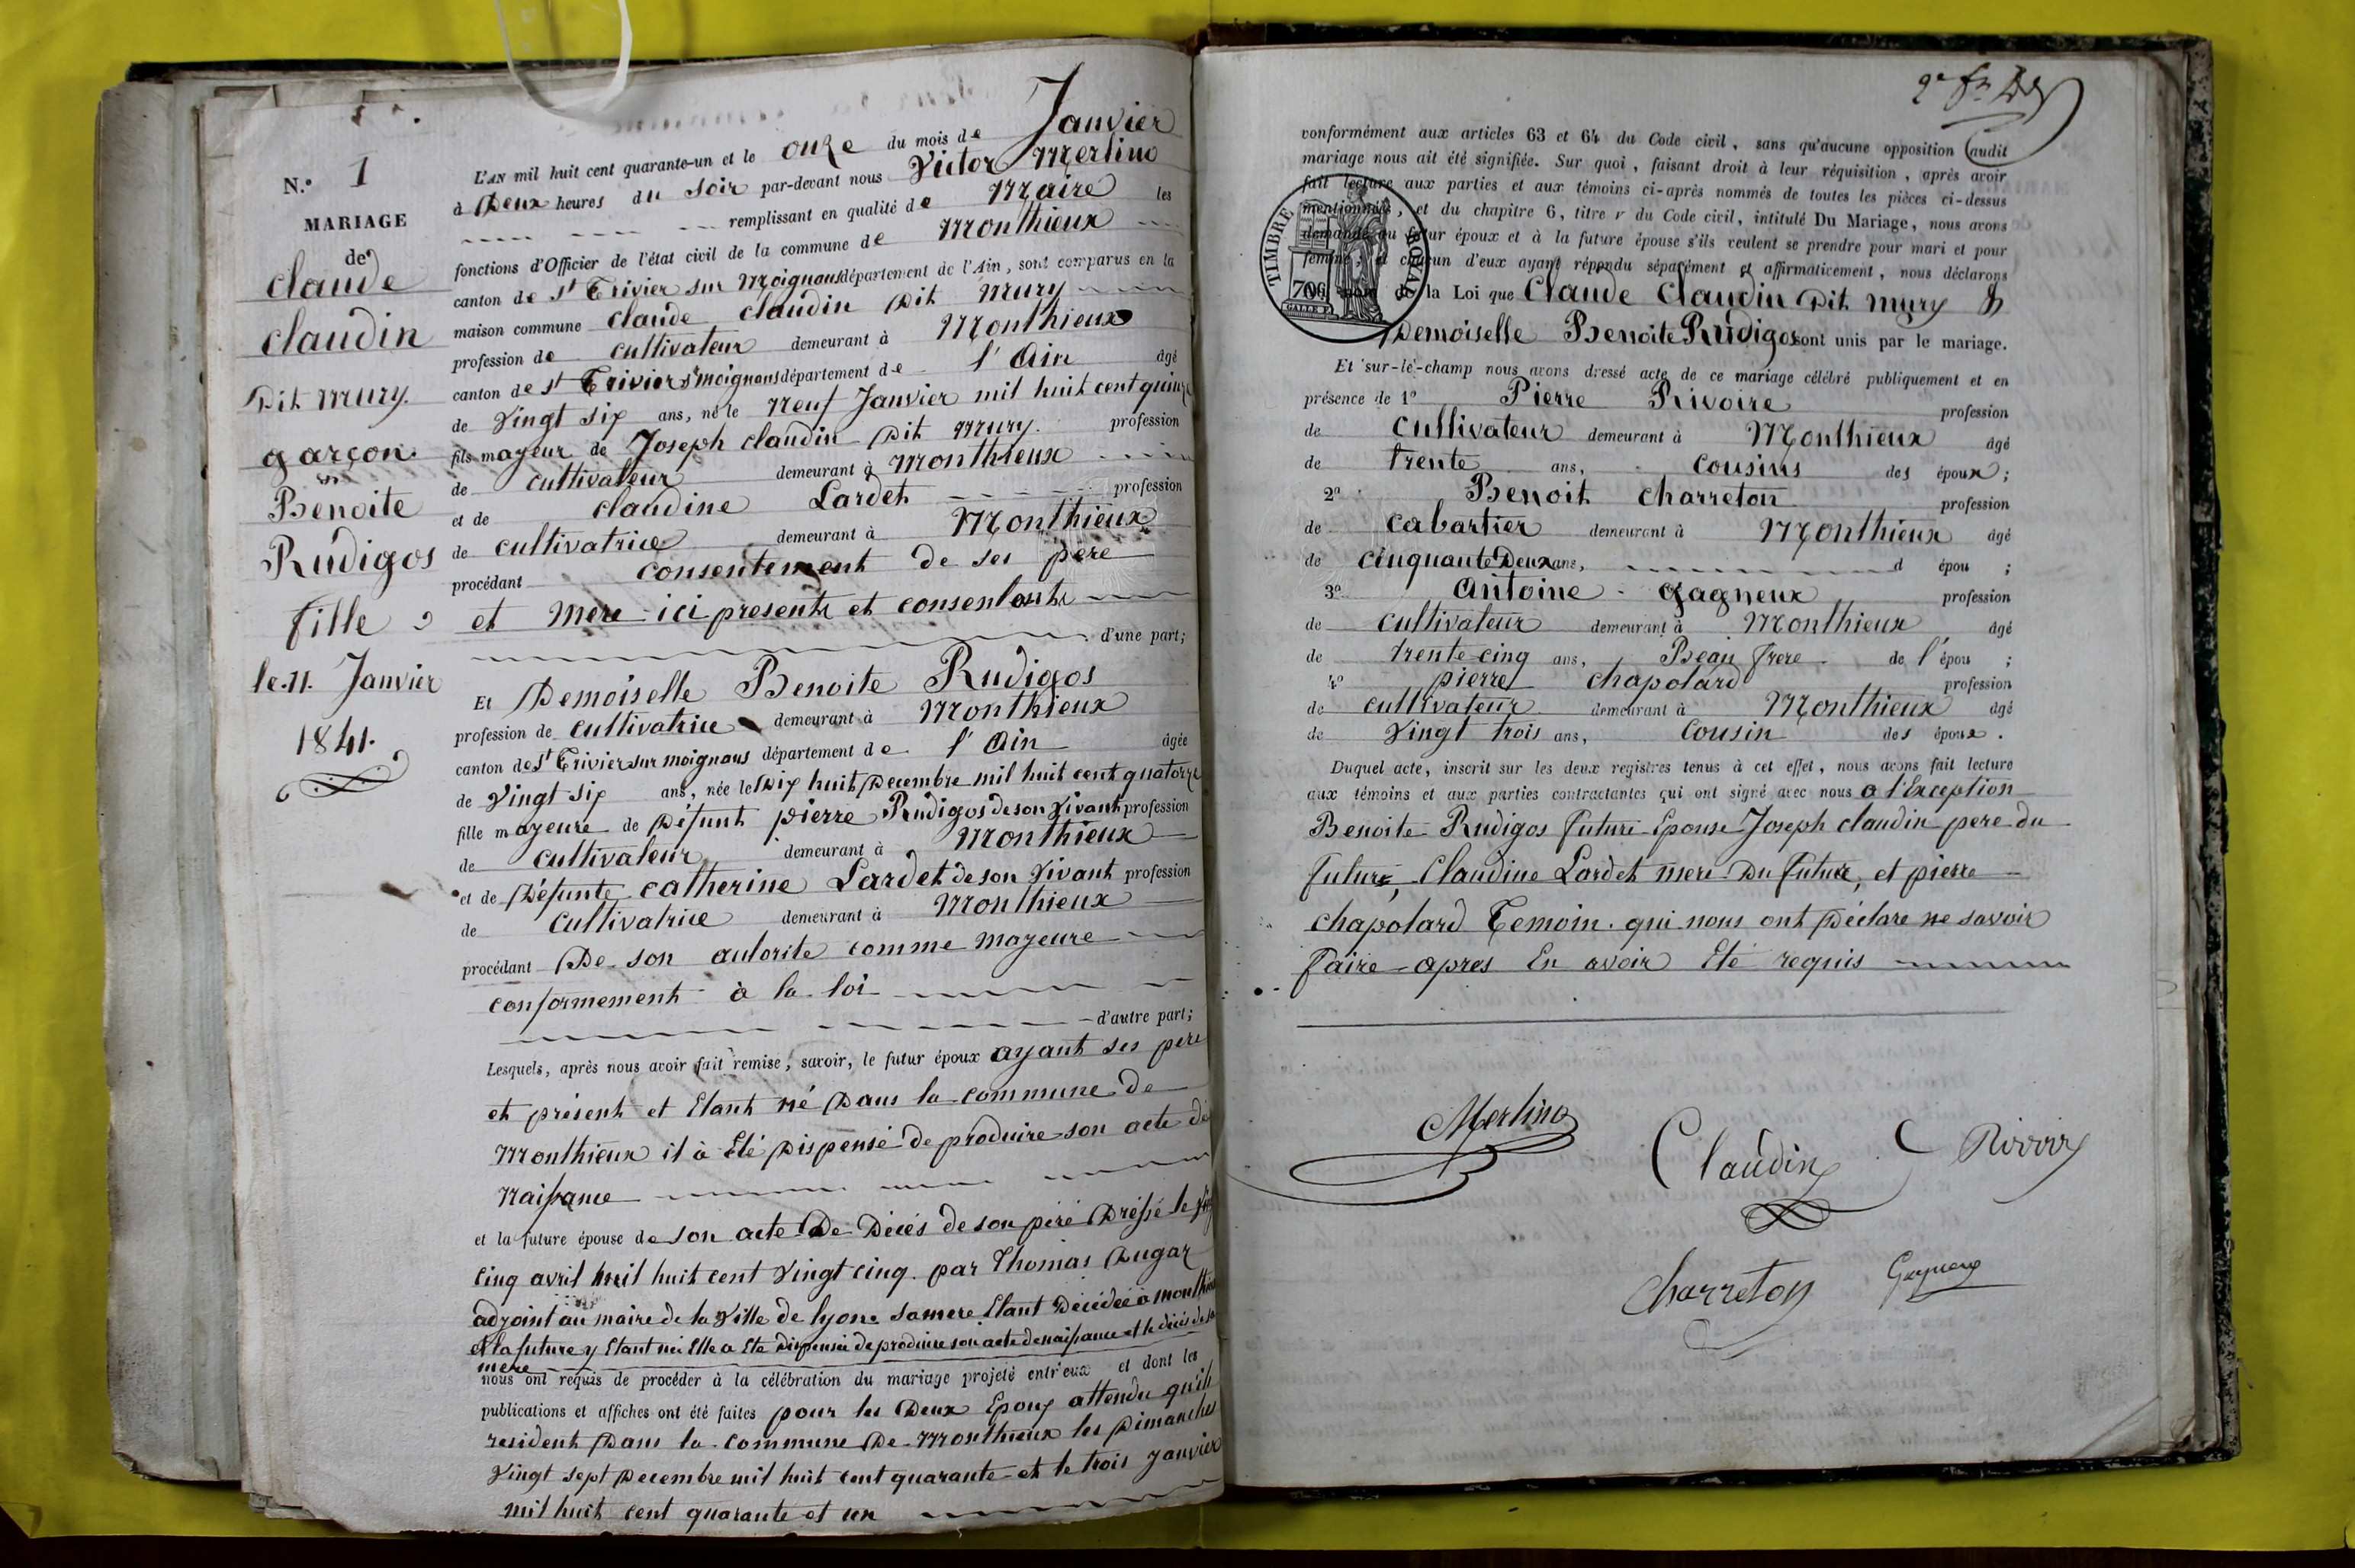 N.° 1
MARIAGE
de
Claude
Claudin
Dit Mury.
garçon
Benoite
Rudigos
fille
le 11 Janvier
1841.
L'AN mil huit cent quarante-un et le onze du mois de Janvier
à Deux heures du soir par-devant nous Victor Merlino
remplissant en qualité de Maire les
fonctions d'Officier de l'état civil de la commune de Monthieux
canton de st Trivier sur Moignans département de l'Ain, sont comparus en la
maison commune Claude Claudin Dit Mury
profession de cultivateur demeurant à Monthieux
canton de st Trivier sr moignans département de l'Ain âgé
de Vingt six ans, né le Neuf Janvier mil huit cent quinze
fils majeur de Joseph Claudin Dit Mury. profession
de cultivateur demeurant à Monthieux
et de Claudine Lardet profession
de cultivatrice demeurant à Monthieux
procédant consentement de ses pere
et mere ici presents et consentants
d'une part;
Et Demoiselle Benoite Rudigos
profession de cultivatrice demeurant à Monthieux
canton de st Trivier sur moignans département de l'Ain âgée
de Vingt six ans, née le Dix huit Decembre mil huit cent quatorze
fille majeure de Défunt pierre Rudigos de son Vivant profession
de cultivateur demeurant à Monthieux
et de Défunte Catherine Lardet de son Vivant profession
de cultivatrice demeurant à Monthieux
procédant De son autorite comme majeure
conformement à la loi
d'autre part;
Lesquels, après nous avoir fait remise, savoir, le futur époux ayant ses pere
et présent et Etant né Dans la commune de
Monthieux il à Eté Dispensé de produire son acte de
Naissance
et la future épouse de son acte De Décés de son pere Dressé le
Cinq avril mil huit cent Vingt cinq. par Thomas Dugas
adjoint au maire de la Ville de lyon. sa mere Etant Décédée à monthieux
et la future y Etant née Elle a Ete Dispensée de produire son acte de naissance et le décés de sa
mere
nous ont requis de procéder à la célébration du mariage projeté entr'eux et dont les
publications et affiches ont été faites pour les Deux Epoux attendu qu'ils
resident Dans la commune De Monthieux les Dimanches
Vingt sept Decembre mil huit cent quarante et le trois Janvier
mil huit cent quarante et un
conformément aux articles 63 et 64 du Code civil, sans qu'aucune opposition audit
mariage nous ait été signifiée. Sur quoi, faisant droit à leur réquisition, après avoir
fait lecture aux parties et aux témoins ci-après nommés de toutes les pièces ci-dessus
mentionnées, et du chapitre 6, titre V du Code civil, intitulé Du Mariage, nous avons
demandé au futur époux et à la future épouse s'ils veulent se prendre pour mari et pour
femme; et chacun d'eux ayant répondu séparément et affirmativement, nous déclarons
au nom de la Loi que Claude Claudin Dit Mury &
Demoiselle Benoite Rudigos sont unis par le mariage.
TIMBRE ROYAL
Et sur-le-champ nous avons dressé acte de ce mariage célébré publiquement et en
présence de 1° Pierre Rivoire profession
de cultivateur demeurant à Monthieux âgé
de trente ans, cousins des époux;
2° Benoit Charreton profession
de cabartier demeurant à Monthieux âgé
de cinquante Deux ans, d épou ;
3° Antoine Gagneux profession
de cultivateur demeurant à Monthieux âgé
de trente cinq ans, Beau frere de l'épou ;
4° pierre chapolard profession
de cultivateur demeurant à Monthieux âgé
de Vingt trois ans, Cousin des époux.
Duquel acte, inscrit sur les deux registres tenus à cet effet, nous avons fait lecture
aux témoins et aux parties contractantes qui ont signé avec nous a l'Exception
Benoite Rudigos future Epouse Joseph Claudin pere du
futur, Claudine Lardet mere Du futur, et pierre
chapolard Temoin. qui nous ont Déclare ne savoir
faire apres En avoir Eté requis
Merlino
Claudin
Rivoire
Charreton
Gagneux